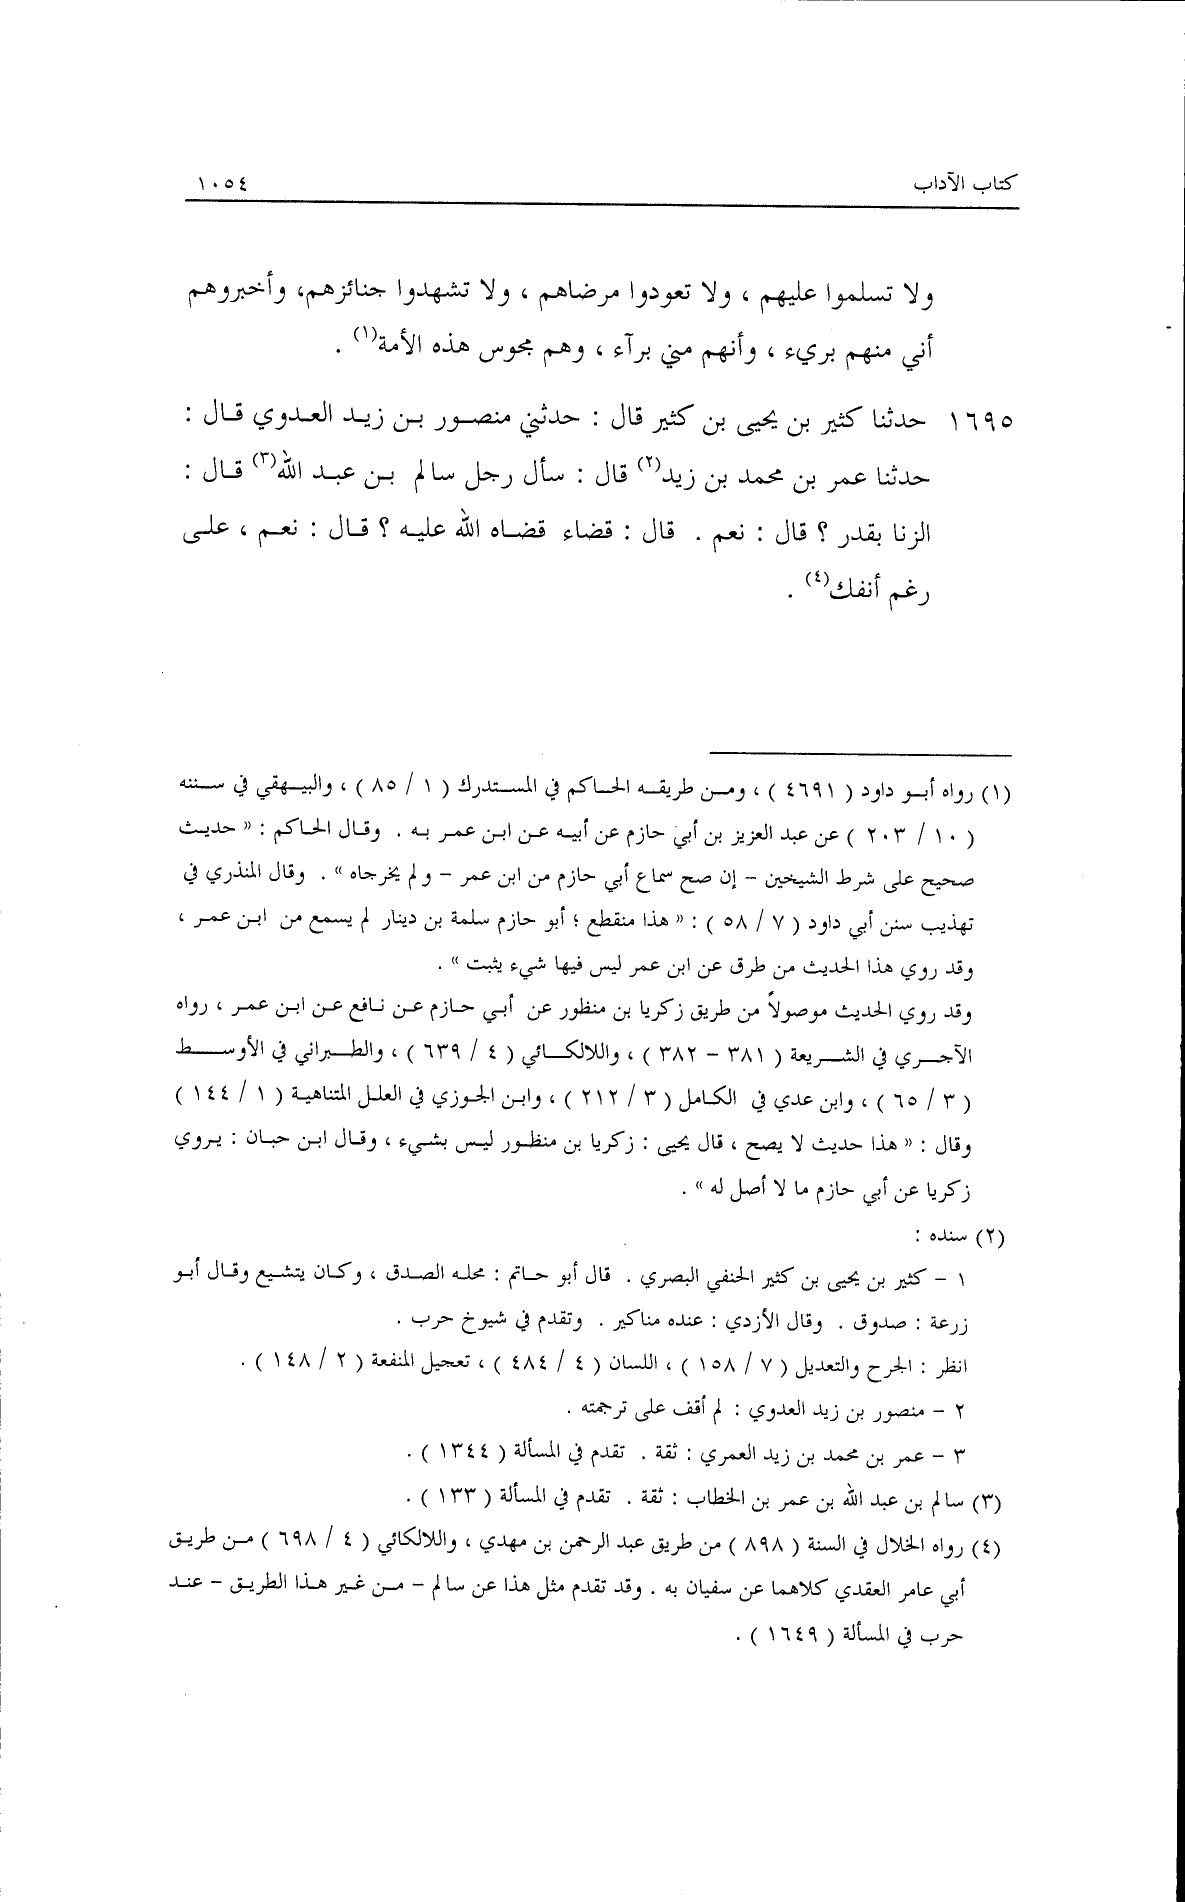 كتاب الآداب ١٠٥٤
ولا تسلموا عليهم ، ولا تعودوا مرضاهم ، ولا تشهدوا جنائزهم، وأخبروهم
أني منهم بريء ، وأنهم مني برآء ، وهم مجوس هذه الأمة(١) .
١٦٩٥ حدثنا كثير بن يحيى بن كثير قال : حدثني منصور بن زيد العدوي قال :
حدثنا عمر بن محمد بن زيد(٢) قال : سأل رجل سالم بن عبد الله(٣) قال :
الزنا بقدر ؟ قال : نعم . قال : قضاء قضاه الله عليه ؟ قال : نعم ، على
رغم أنفك(٤) .
(١) رواه أبو داود ( ٤٦٩١ ) ، ومن طريقه الحاكم في المستدرك ( ١ / ٨٥ ) ، والبيهقي في سننه
( ١٠ / ٢٠٣ ) عن عبد العزيز بن أبي حازم عن أبيه عن ابن عمر به . وقال الحاكم : « حديث
صحيح على شرط الشيخين – إن صح سماع أبي حازم من ابن عمر – ولم يخرجاه » . وقال المنذري في
تهذيب سنن أبي داود ( ٧ / ٥٨ ) : « هذا منقطع ؛ أبو حازم سلمة بن دينار لم يسمع من ابن عمر ،
وقد روي هذا الحديث من طرق عن ابن عمر ليس فيها شيء يثبت » .
وقد روي الحديث موصولاً من طريق زكريا بن منظور عن أبي حازم عن نافع عن ابن عمر ، رواه
الآجري في الشريعة ( ٣٨١ – ٣٨٢ ) ، واللالكائي ( ٤ / ٦٣٩ ) ، والطبراني في الأوسط
( ٣ / ٦٥ ) ، وابن عدي في الكامل ( ٣ / ٢١٢ ) ، وابن الجوزي في العلل المتناهية ( ١ / ١٤٤ )
وقال : « هذا حديث لا يصح ، قال يحيى : زكريا بن منظور ليس بشيء ، وقال ابن حبان : يروي
زكريا عن أبي حازم ما لا أصل له » .
(٢) سنده :
١ – كثير بن يحيى بن كثير الحنفي البصري . قال أبو حاتم : محله الصدق ، وكان يتشيع وقال أبو
زرعة : صدوق . وقال الأزدي : عنده مناكير . وتقدم في شيوخ حرب .
انظر : الجرح والتعديل ( ٧ / ١٥٨ ) ، اللسان ( ٤ / ٤٨٤ ) ، تعجيل المنفعة ( ٢ / ١٤٨ ) .
٢ – منصور بن زيد العدوي : لم أقف على ترجمته .
٣ – عمر بن محمد بن زيد العمري : ثقة . تقدم في المسألة ( ١٣٤٤ ) .
(٣) سالم بن عبد الله بن عمر بن الخطاب : ثقة . تقدم في المسألة ( ١٣٣ ) .
(٤) رواه الخلال في السنة ( ٨٩٨ ) من طريق عبد الرحمن بن مهدي ، واللالكائي ( ٤ / ٦٩٨ ) من طريق
أبي عامر العقدي كلاهما عن سفيان به . وقد تقدم مثل هذا عن سالم – من غير هذا الطريق – عند
حرب في المسألة ( ١٦٤٩ ) .